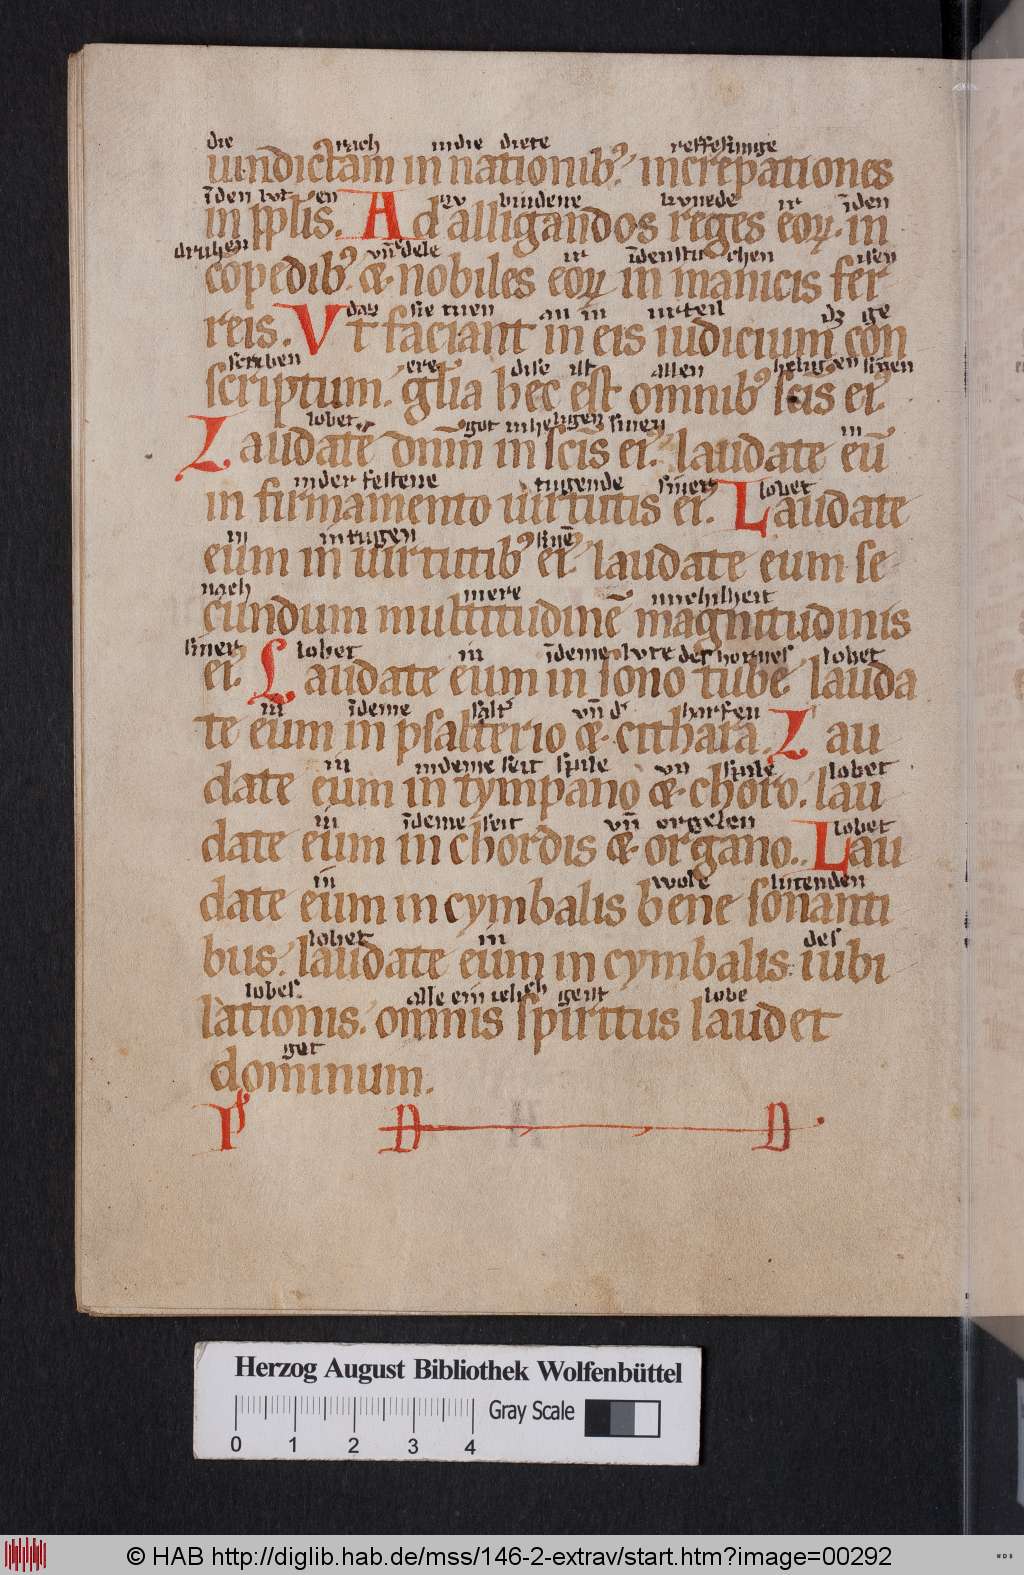 die rach in die diete reffesunge
uindictam in nationib9. increpationes
īden lut en ze bindene kunede ir īden
in pplis. Ad alligandos reges eoꝝ. in
druhen vn̄ edele ir īden stu chen isen
cōpedib9. & nobiles eoꝝ in manicis fer
daz sie tuen an in urteil dz ge
reis. Vt faciant in eis iudicium con
scriben ere dise ist allen heligen sinen
scriptum. gl̄ia hec est omnib9 sc̄is ei9.
lobet got in heligen sinen in
Laudate dn̄m in sc̄is ei9. laudate eū
in der festene tugende siner lobet
in firmamento uirtutis ei9. Laudate
in in tugen sinē
eum in uirtutib9 ei9. laudate eum se
nach mere michilheit
cundum multitudinē magnitudinis
siner lobet in īdeme lute des hornes lobet
ei9. Laudate eum in sono tube. lauda
in īdeme salt' vn̄ d' harfen
te eum in psalterio & cithara. Lau
in in deme seit spile vn spile lobet
date eum in tympano & choro. lau
in īdeme seit vn̄ orgelen lobet
date eum in chordis & organo. Lau
in wole lutenden
date eum in cymbalis bene sonanti
lobet in des
bus. laudate eum in cymbalis iubi
lobes. alle ein ieliceh geist lobe
lationis. omnis spiritus laudet
got
dominum.
Ps D D
Herzog August Bibliothek Wolfenbüttel
0 1 2 3 4 Gray Scale
© HAB http://diglib.hab.de/mss/146-2-extrav/start.htm?image=00292